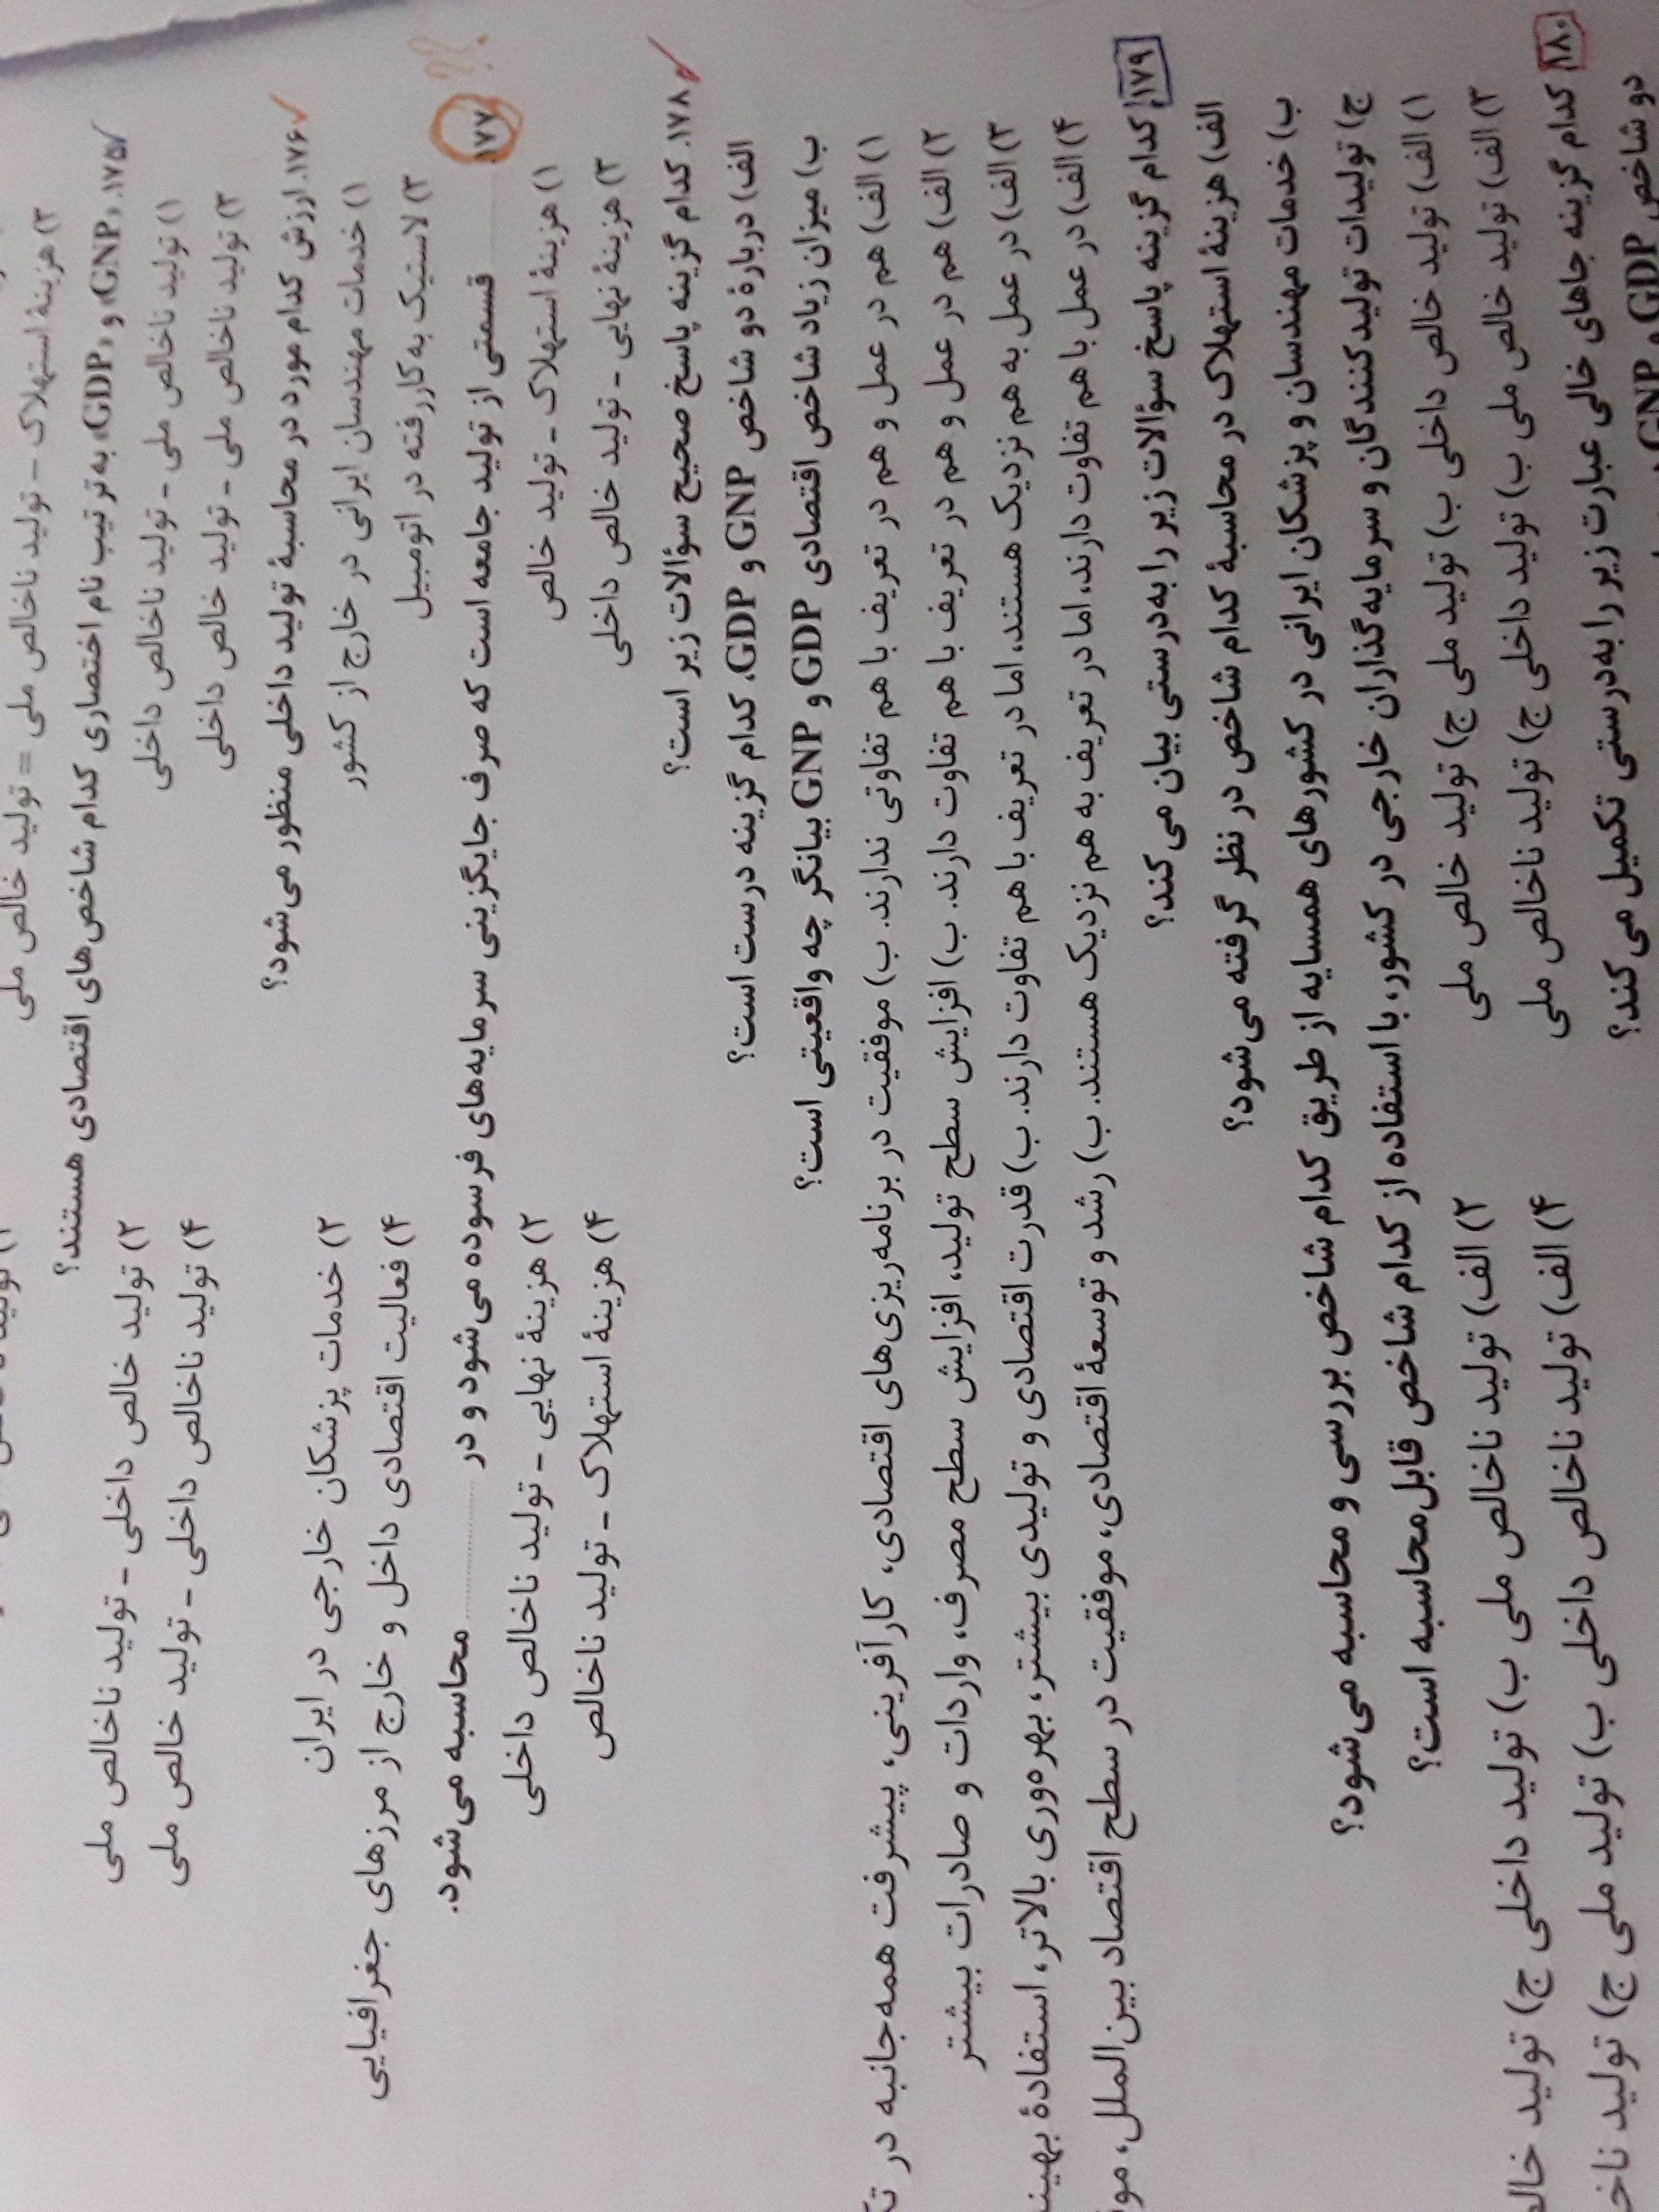 ۳) هزینهٔ استهلاک - تولید ناخالص ملی = تولید خالص ملی
۱۷۵. «GNP» و «GDP» به ترتیب نام اختصاری کدام شاخص‌های اقتصادی هستند؟
۱) تولید ناخالص ملی - تولید ناخالص داخلی ۲) تولید خالص داخلی - تولید ناخالص ملی
۳) تولید ناخالص ملی - تولید خالص داخلی ۴) تولید ناخالص داخلی - تولید خالص ملی
۱۷۶. ارزش کدام مورد در محاسبهٔ تولید داخلی منظور می‌شود؟
۱) خدمات مهندسان ایرانی در خارج از کشور ۲) خدمات پزشکان خارجی در ایران
۳) لاستیک به کار رفته در اتومبیل ۴) فعالیت اقتصادی داخل و خارج از مرزهای جغرافیایی
؟؟
۱۷۷. .......... قسمتی از تولید جامعه است که صرف جایگزینی سرمایه‌های فرسوده می‌شود و در .......... محاسبه می‌شود.
۱) هزینهٔ استهلاک - تولید خالص ۲) هزینهٔ نهایی - تولید ناخالص داخلی
۳) هزینهٔ نهایی - تولید خالص داخلی ۴) هزینهٔ استهلاک - تولید ناخالص
۱۷۸. کدام گزینه پاسخ صحیح سؤالات زیر است؟
الف) دربارهٔ دو شاخص GNP و GDP، کدام گزینه درست است؟
ب) میزان زیاد شاخص اقتصادی GDP و GNP بیانگر چه واقعیتی است؟
۱) الف) هم در عمل و هم در تعریف با هم تفاوتی ندارند. ب) موفقیت در برنامه‌ریزی‌های اقتصادی، کارآفرینی، پیشرفت همه‌جانبه در
۲) الف) هم در عمل و هم در تعریف با هم تفاوت دارند. ب) افزایش سطح تولید، افزایش سطح مصرف، واردات و صادرات بیشتر
۳) الف) در عمل به هم نزدیک هستند، اما در تعریف با هم تفاوت دارند. ب) قدرت اقتصادی و تولیدی بیشتر، بهره‌وری بالاتر، استفادهٔ
۴) الف) در عمل با هم تفاوت دارند، اما در تعریف به هم نزدیک هستند. ب) رشد و توسعهٔ اقتصادی، موفقیت در سطح اقتصاد بین‌الملل،
۱۷۹. کدام گزینه پاسخ سؤالات زیر را به درستی بیان می‌کند؟
الف) هزینهٔ استهلاک در محاسبهٔ کدام شاخص در نظر گرفته می‌شود؟
ب) خدمات مهندسان و پزشکان ایرانی در کشورهای همسایه از طریق کدام شاخص بررسی و محاسبه می‌شود؟
ج) تولیدات تولیدکنندگان و سرمایه‌گذاران خارجی در کشور، با استفاده از کدام شاخص قابل محاسبه است؟
۱) الف) تولید خالص داخلی ب) تولید ملی ج) تولید خالص ملی ۲) الف) تولید ناخالص ملی ب) تولید داخلی ج) تولید
۳) الف) تولید خالص ملی ب) تولید داخلی ج) تولید ناخالص ملی ۴) الف) تولید ناخالص داخلی ب) تولید ملی ج) تولید
۱۸۰. کدام گزینه جاهای خالی عبارت زیر را به درستی تکمیل می‌کند؟
دو شاخص GDP و GNP